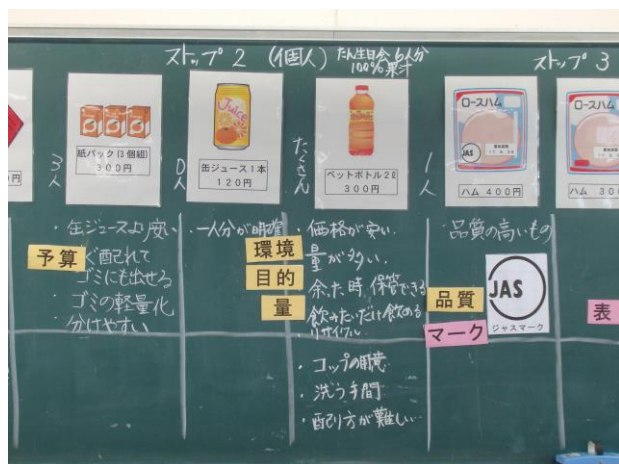 ストップ2 (個人) たん生日会6人分
100%果汁
ストップ3
円
紙パック(3個組)
300円
3人
Juice
缶ジュース1本
120円
0人
ペットボトル2ℓ
300円
たくさん
ロースハム
JAS
ハム 400円
1人
ロースハム
ハム 30
・缶ジュースより安い
予算
ぐ配れて
ゴミにも出せる
・ゴミの軽量化
分けやすい
・一人分が明確
環境
目的
量
・価格が安い
量が多い
余った時、保管できる
飲みたいだけ飲める
リサイクル
・コップの用意
・洗う手間
・配り方が難しい
・品質の高いもの
品質
マーク
JAS
ジャスマーク
表